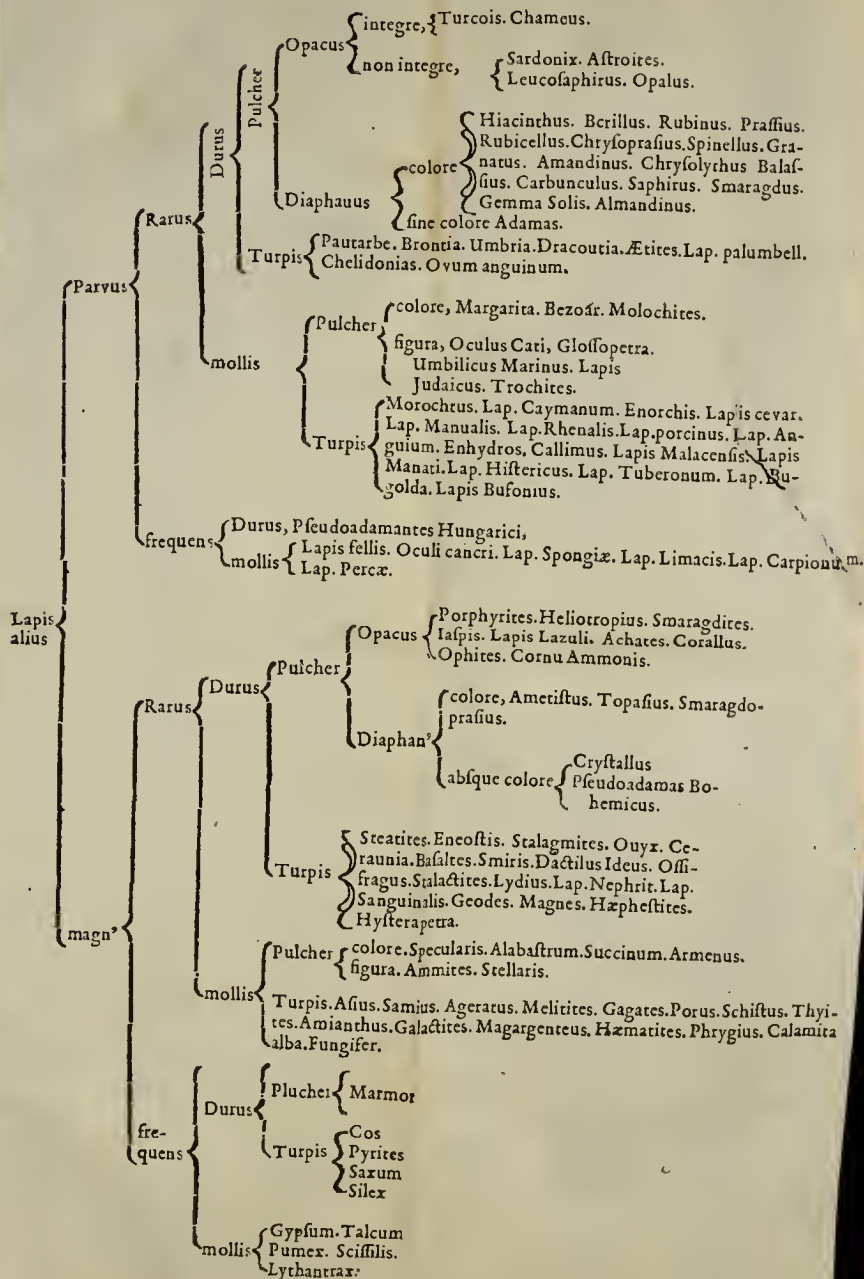 integre, Turcois. Chameus.
Opacus
non integre,
Sardonix. Aſtroites.
Leucoſaphirus. Opalus.
Pulcher
Durus
Hiacinthus. Berillus. Rubinus. Praſſius.
Rubicellus.Chryſopraſius.Spinellus.Gra-
natus. Amandinus. Chryſolythus Balaſ-
ſius. Carbunculus. Saphirus. Smaragdus.
Gemma Solis. Almandinus.
colore
Diaphauus
ſine colore Adamas.
Rarus
Turpis
Pautarbe. Brontia. Umbria.Dracoutia.Ætites.Lap. palumbell.
Chelidonias. Ovum anguinum.
Parvus
colore, Margarita. Bezoár. Molochites.
Pulcher
figura, Oculus Cati, Gloſſopetra.
Umbilicus Marinus. Lapis
Judaicus. Trochites.
mollis
Morochtus. Lap. Caymanum. Enorchis. Lapis cevar.
Lap. Manualis. Lap.Rhenalis.Lap.porcinus. Lap. An-
guium. Enhydros. Callimus. Lapis Malacenſis. Lapis
Manati.Lap. Hiſtericus. Lap. Tuberonum. Lap. Bu-
golda. Lapis Bufonius.
Turpis
frequens
Durus, Pſeudoadamantes Hungarici,
mollis
Lapis fellis. Oculi cancri. Lap. Spongiæ. Lap. Limacis.Lap. Carpionum.
Lap. Percæ.
Lapis
alius
Porphyrites.Heliotropius. Smaragdites.
Iaſpis. Lapis Lazuli. Achates. Corallus.
Ophites. Cornu Ammonis.
Opacus
Pulcher
Durus
Rarus
colore, Ametiſtus. Topaſius. Smaragdo-
praſius.
Diaphan'
abſque colore
Cryſtallus
Pſeudoadamas Bo-
hemicus.
Turpis
Steatites.Eneoſtis. Stalagmites. Ouyx. Ce-
raunia.Baſaltes.Smiris.Dactilus Ideus. Oſſi-
fragus.Stalactites.Lydius.Lap.Nephrit.Lap.
Sanguinalis.Geodes. Magnes. Hæpheſtites.
Hyſterapetra.
magn'
Pulcher
colore.Specularis. Alabaſtrum.Succinum.Armenus.
figura. Ammites. Stellaris.
mollis
Turpis.Aſius.Samius. Ageratus. Melitites. Gagates.Porus.Schiſtus. Thyi-
tes.Amianthus.Galactites. Magargenteus. Hæmatites. Phrygius. Calamita
alba.Fungifer.
Plucher Marmor
Durus
fre-
quens
Turpis
Cos
Pyrites
Saxum
Silex
mollis
Gypſum.Talcum
Pumex. Sciſſilis.
Lythantrax.